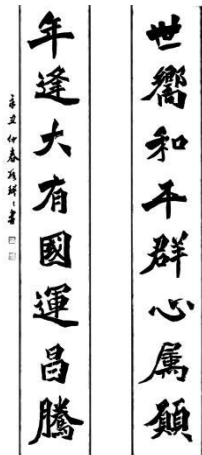 世嚮和平群心属願
年逢大有國運昌騰
辛丑仲春書